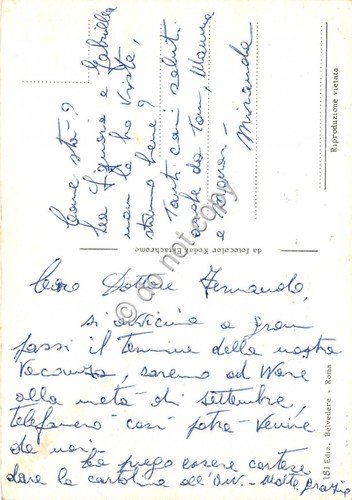 Caro Dottore Fernando,
si avvicina a gran
passi il termine della nostra
vacanza, saremo ad
alla metà di settembre,
telefonerò così potrà venire
da noi.
La prego essere cortese
dare la cartolina all'Avv. - Molte grazie
Come stà?
La Signora e Gabriella
non le ho viste,
stanno bene?
Tanti cari saluti
anche da Tom, Mamma
e
Miranda
da fotocolor Kodak Ektachrome
Riproduzione vietata
181 Ediz. Belvedere - Roma
© do not copy